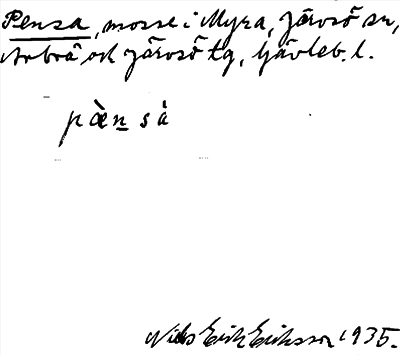 Pensa, mosse i Myra, Järvsö sn,
Arbrå och Järvsö tg, Gävleb. l.
pæ̀n sà
Nils Erik Eriksson 1935.